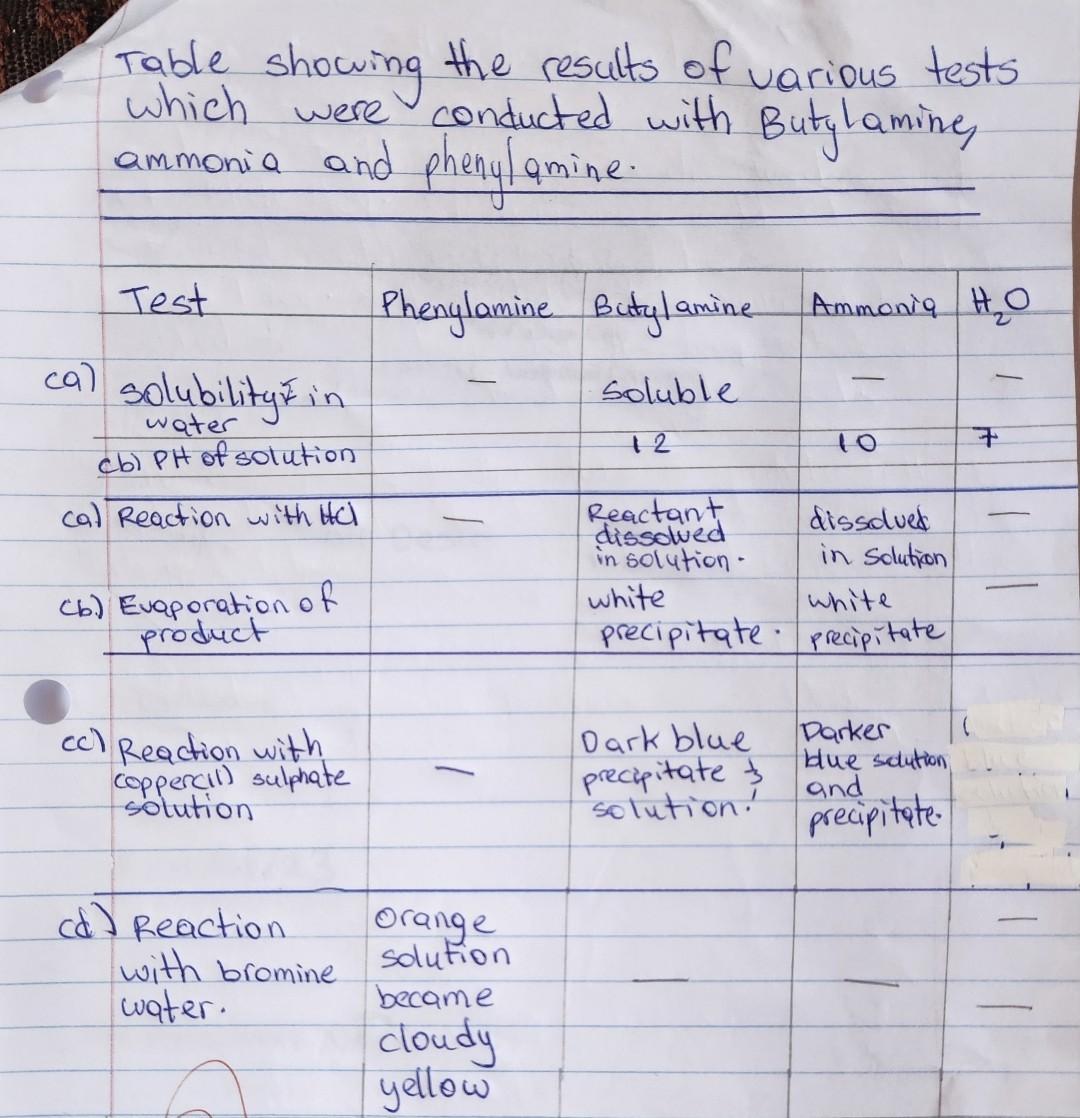 Table showing the results of various tests
which were conducted with Butylamine,
ammonia and phenylamine.
Test Phenylamine Butylamine Ammonia H₂O
(a) solubility in — Soluble — —
water
(b) PH of solution 12 10 7
(a) Reaction with HCl — Reactant dissolved —
dissolved in solution
in solution.
(b) Evaporation of white white —
product precipitate. precipitate
(c) Reaction with — Dark blue Darker
copper(II) sulphate precipitate & blue solution
solution solution. and
precipitate.
(d) Reaction Orange — — —
with bromine solution —
water. became
cloudy
yellow